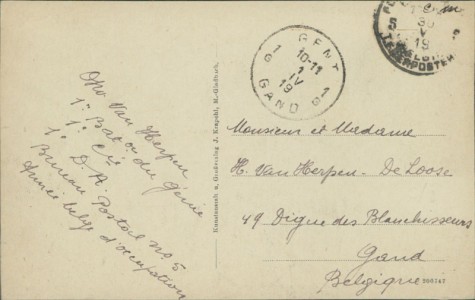 Oho Van Herpen
1er Bat on du génie
1e Cie
1e D. A.
Bureau Postal no 5
Armée belge d'occupation
Kunstanstalt u. Großverlag J. Krapohl, M.-Gladbach.
GENT
1 1
10-11
1
IV
19
GAND
5
30
V
19
LEGERPOSTERIJ
Monsieur et Madame
H. Van Herpen - De Loose
49 Digue des Blanchisseurs
Gand
Belgique